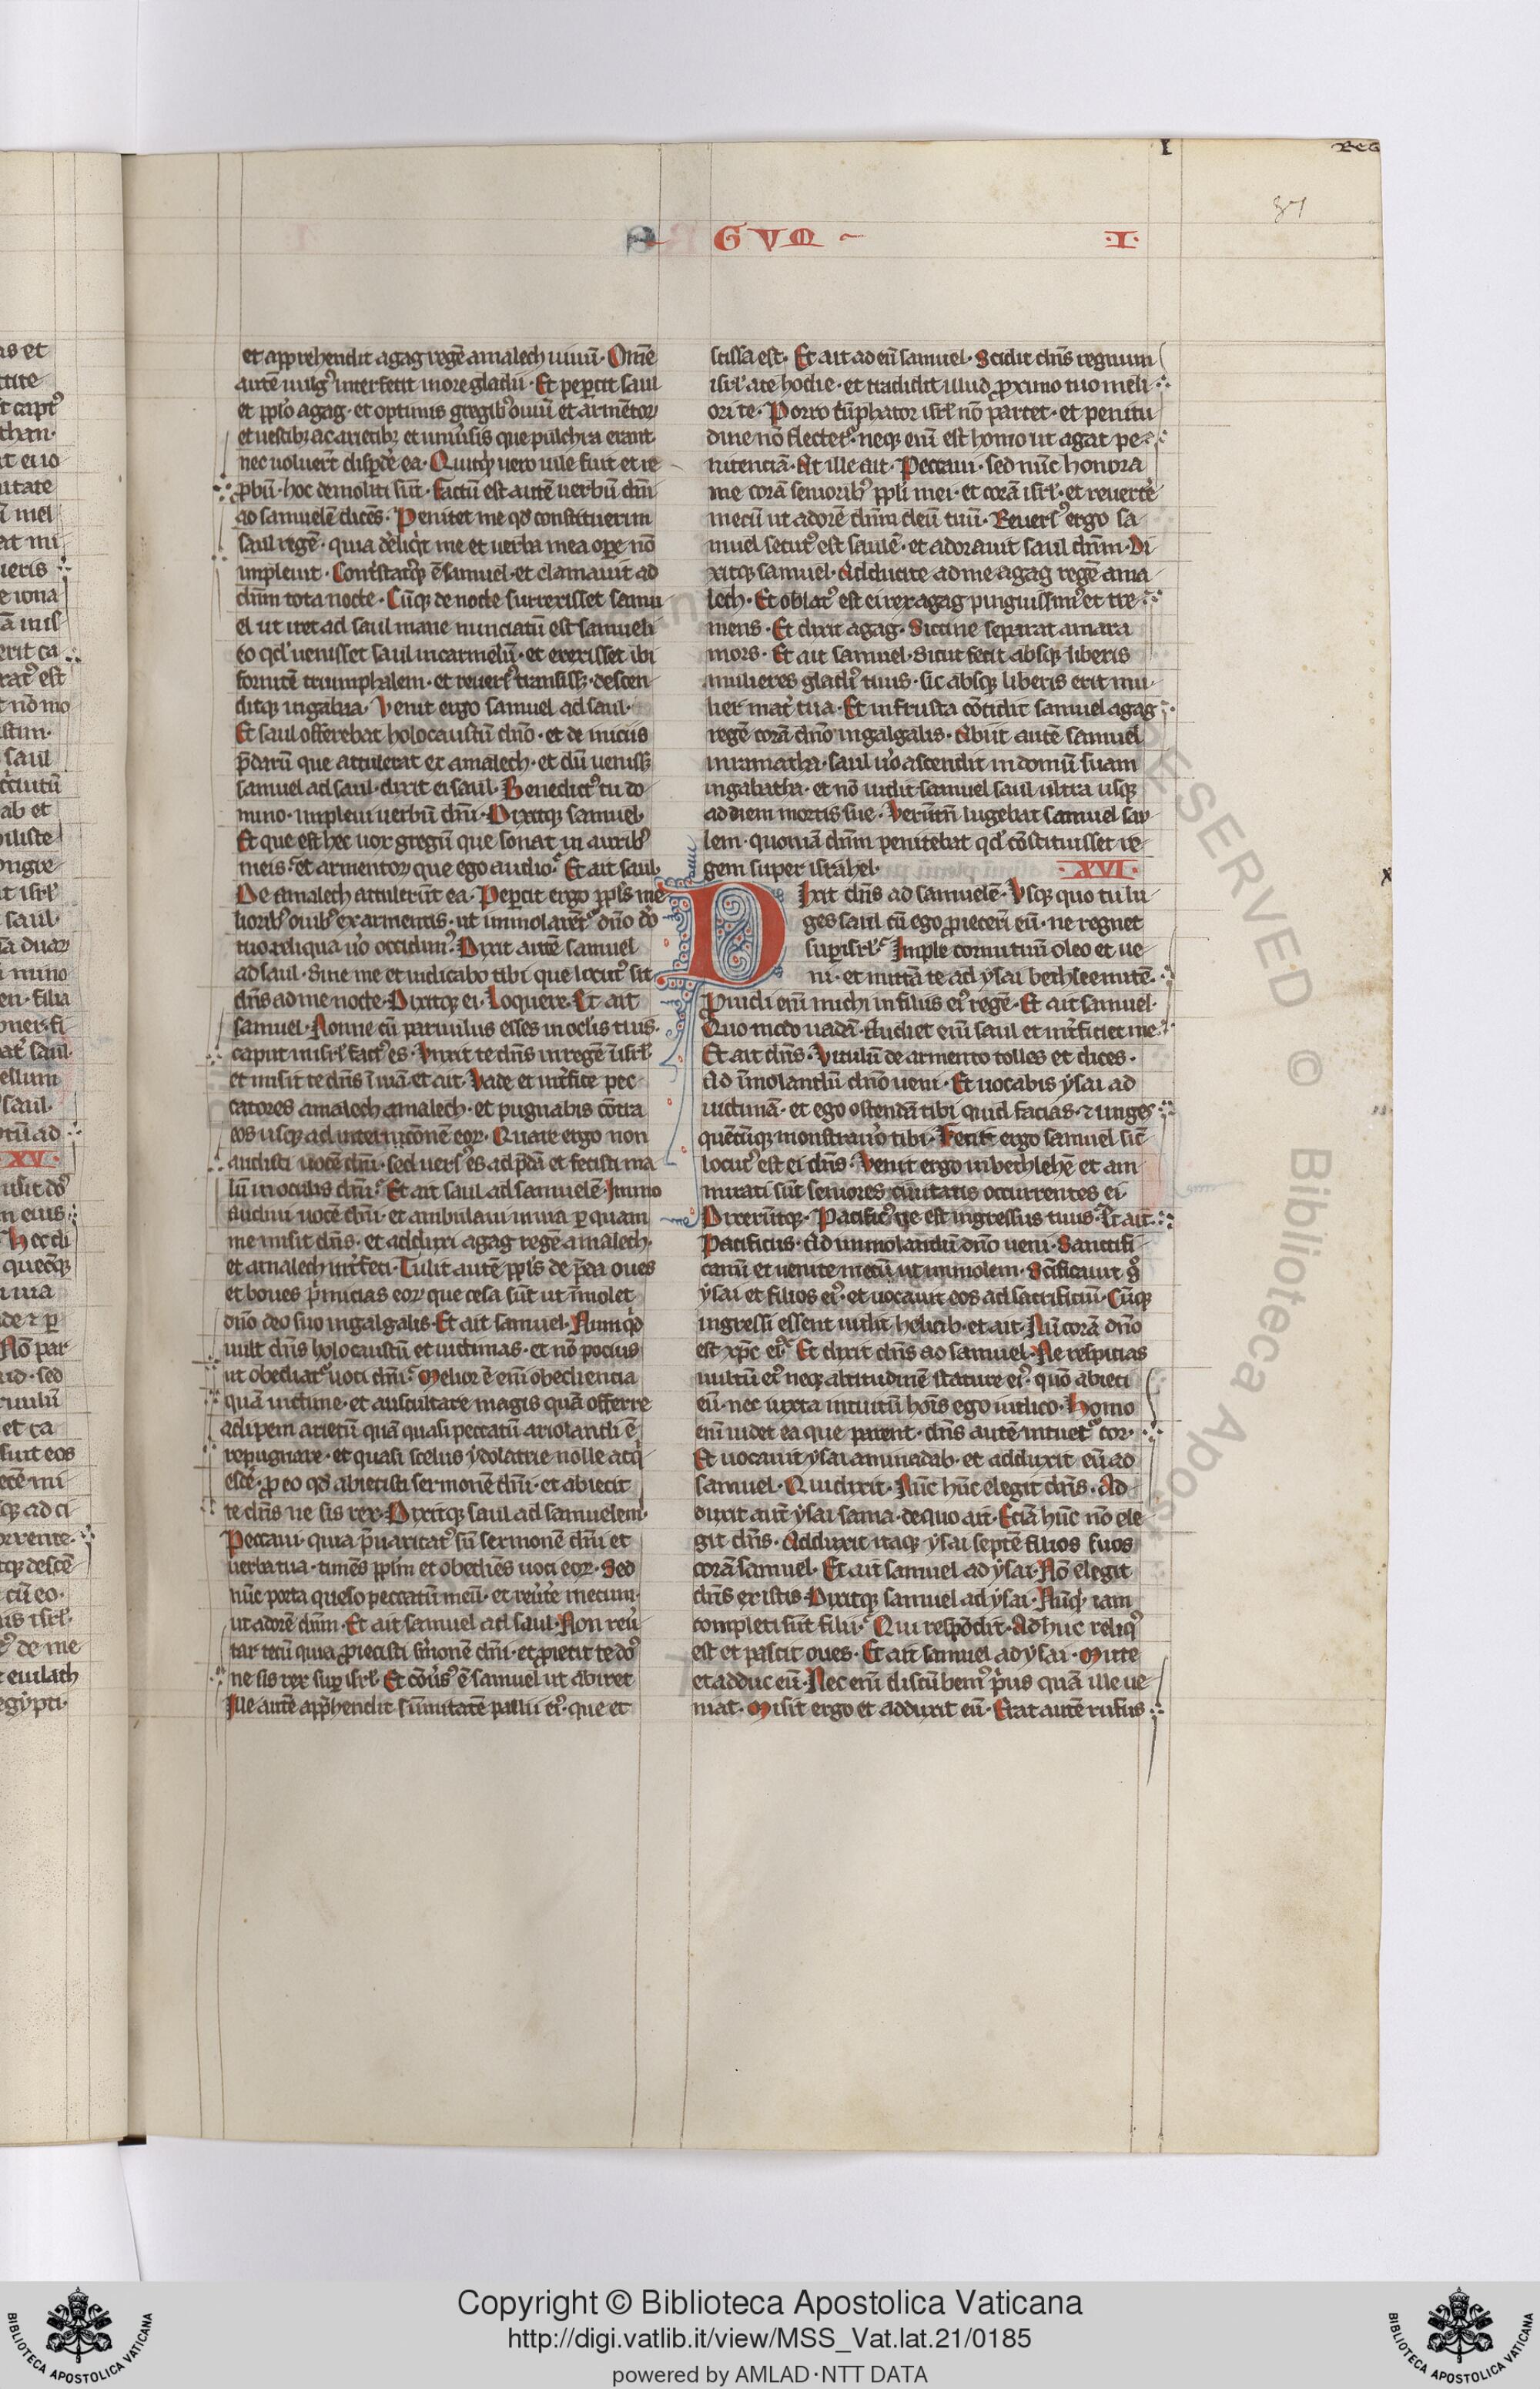 I
Reg
87
GVM
·I·
et apprehendit agag regē amalech uiuū· Omē
autē uulgꝰ interfecit in ore gladii· Et peꝑcit saul
et ppłs agag· et optimis gregibꝰ ouiū et armētoꝝ
et uestibꝫ ac arietibꝫ et uniūsis que pulchra erant·
nec uoluerūt disꝑdē ea· Quicqͥd uero uile fuit et re
ꝓbū· hoc demoliti sūt· Factū est autē uerbū dn̄i
ad samuelē dicēs· Penitet me qd̕ constituerim
saul regē· quia dereliqͥt me et uerba mea oꝑe nō
impleuit· Contͥstatꝰqꝫ ē samuel· et clamauit ad
dn̄m tota nocte· Cūqꝫ de nocte surrexisset samu
el ut iret ad saul mane nunciatū est samueli
eo qd̕ uenisset saul in carmelū· et erexisset ibi
fornicē triumphalem· et reuersꝰ transissꝫ· descen
ditqꝫ in galgala· Venit ergo samuel ad saul·
Et saul offerebat holocaustū dn̄o· et de iniciis
p̄darū que attulerat ex amalech· et dū uenissꝫ
samuel ad saul· dixit ei saul· Benedictꝰ tu do
mino· impleui uerbū dn̄i· Dixitqꝫ samuel·
Et que est hec uox gregū que sonat in auribꝰ
meis· et armentoꝝ que ego audio· Et ait saul·
De amalech attulerūt ea· Peꝑcit ergo ppłs me
lioribꝰ ouibꝰ ex armentis· ut immolarētᷣ dn̄o dō
tuo· reliqua ūo occidimꝰ· Dixit autē samuel
ad saul· Sine me et indicabo tibi que locutꝰ sit
dn̄s ad me nocte· Dixitqꝫ ei· Loquere· Et ait
samuel· Nonne cū paruulus esses in oclis tuis·
caput in isrł factꝰ es· Vnxit te dn̄s in regē ī isrł·
et misit te dn̄s ī uiā· et ait· Vade et int̄fice pec
catores amalech amalech· et pugnabis cōtra
eos usqꝫ ad internicōnē eoꝝ· Quare ergo non
audisti uocē dn̄i· sed uersꝰ es ad p̄dā et fecisti ma
lū in oculis dn̄i· Et ait saul ad samuelē· Immo
audiui uocē dn̄i· et ambulaui in uia ꝑ quam
me misit dn̄s· et adduxi agag regē amalech·
et amalech int̄feci· Tulit autē ppłs de p̄da oues
et boues p̄micias eoꝝ que cesa sūt ut īmolet
dn̄o deo suo in galgalis· Et ait samuel· Numqͥd
uult dn̄s holocaustū et uictimas· et nō pocius
ut obediatᷣ uoci dn̄i· Melior ē enī obediencia
quā uictime· et auscultare magis quā offerre
adipem arietū quā quasi peccatū ariolandi ē
repugnare· et quasi scelus ydolatrie nolle acqͥ
escē· ꝓ eo qd̕ abiecisti sermonē dn̄i· et abiecit
te dn̄s ne sis rex· Dixitqꝫ saul ad samuelem·
Peccaui· quia p̄uaricatꝰ sū sermonē dn̄i et
uerba tua· timēs ppłm et obediēs uoci eoꝝ· Sed
nūc porta queso peccatū meū· et reūtē mecum·
ut adorē dn̄m· Et ait samuel ad saul· Non reū
tar tecū quia ꝓiecisti s̄monē dn̄i· et ꝓiecit te dn̄s
ne sis rex suꝑ isrł· Et cōūsꝰ ē samuel ut abiret
Ille autē app̄hendit sūmitatē pallii eiꝰ· que et
scissa est· Et ait ad eū samuel· Scidit dn̄s regnum
isrł a te hodie· et tradidit illud ꝓximo tuo meli
ori te· Porro tūphator isrł nō parcet· et penitu
dine nō flectetᷣ· neqꝫ enī est homo ut agat pe
nitenciā· At ille ait· Peccaui· sed nūc honora
me corā senioribꝰ ppłi mei· et corā isrł· et reuertē
mecū ut adorē dn̄m deū tuū· Reuersꝰ ergo sa
muel secutꝰ est saulē· et adorauit saul dn̄m· Di
xitqꝫ samuel· Adducite ad me agag regē ama
lech· Et oblatꝰ est ei rex agag pinguissimꝰ et tre
mens· Et dixit agag· Siccine separat amara
mors· Et ait samuel· Sicut fecit absqꝫ liberis
mulieres gladiꝰ tuus· sic absqꝫ liberis erit mu
lier mat̄ tua· Et in frusta cōcidit samuel agag
regē corā dn̄o in galgalis· Abiit autē samuel
in ramatha· saul ūo ascendit in domū suam
in gabatha· et nō uidit samuel saul ultra usqꝫ
ad diem mortis sue· Verūtn̄ lugebat samuel sau
lem· quoniā dn̄m penitebat qd̕ cōstituisset re
gem super israhel·
XVI·
Dixit dn̄s ad samuelē· Vsqꝫ quo tu lu
ges saul cū ego ꝓiecerī eū· ne regnet
suꝑ isrł· Imple cornu tuū oleo et ue
ni· et mittā te ad ysai bethleemitē·
Prouidi enī michi in filiis eiꝰ regē· Et ait samuel·
Quo modo uadā· Audiet enī saul et int̄ficiet me·
Et ait dn̄s· Vitulū de armento tolles et dices·
Ad īmolandū dn̄o ueni· Et uocabis ysai ad
uictimā· et ego ostendā tibi quid facias· ⁊ unges
quēcūqꝫ monstraūo tibi· Fecit ergo samuel sic̄
locutꝰ est ei dn̄s· Venit ergo in bethlehē et am
mirati sūt seniores ciuitatis occurrentes ei
Dixerūtqꝫ· Pacificꝰ ne est ingressus tuus· Et ait·
Pacificus· Ad immolandū dn̄o ueni· Sanctifi
camī et uenite mecū ut immolem· Sc̄ificauit gͦ
ysai et filios eiꝰ· et uocauit eos ad sacrificiū· Cūqꝫ
ingressi essent uidit heliab· et ait· Nū corā dn̄o
est xp̄c eiꝰ· Et dixit dn̄s ad samuel· Ne respicias
uultū eiꝰ neqꝫ altitudinē stature eiꝰ· quō abieci
eū· nec iuxta intuitū hoīs ego iudico· Homo
enī uidet ea que parent· dn̄s autē intuetᷣ cor·
Et uocauit ysai aminadab· et adduxit eū ad
samuel· Qui dixit· Nūc hūc elegit dn̄s· Ad
duxit aut̄ ysai sama· de quo ait· Eciā hūc nō ele
git dn̄s· Adduxit itaqꝫ ysai septē filios suos
corā samuel· Et ait samuel ad ysai· Nō elegit
dn̄s ex istis· Dixitqꝫ samuel ad ysai· Nūqͥd iam
completi sūt filii· Qui respōdit· Adhuc reliqꝰ
est et pascit oues· Et ait samuel ad ysai· Mitte
et adduc eū· Nec enī discūbemꝰ pͥus quā ille ue
niat· Misit ergo et adduxit eū· Erat autē rufus
XV·
Copyright © Biblioteca Apostolica Vaticana
http://digi.vatlib.it/view/MSS_Vat.lat.21/0185
powered by AMLAD·NTT DATA
BIBLIOTECA APOSTOLICA VATICANA
BIBLIOTECA APOSTOLICA VATICANA